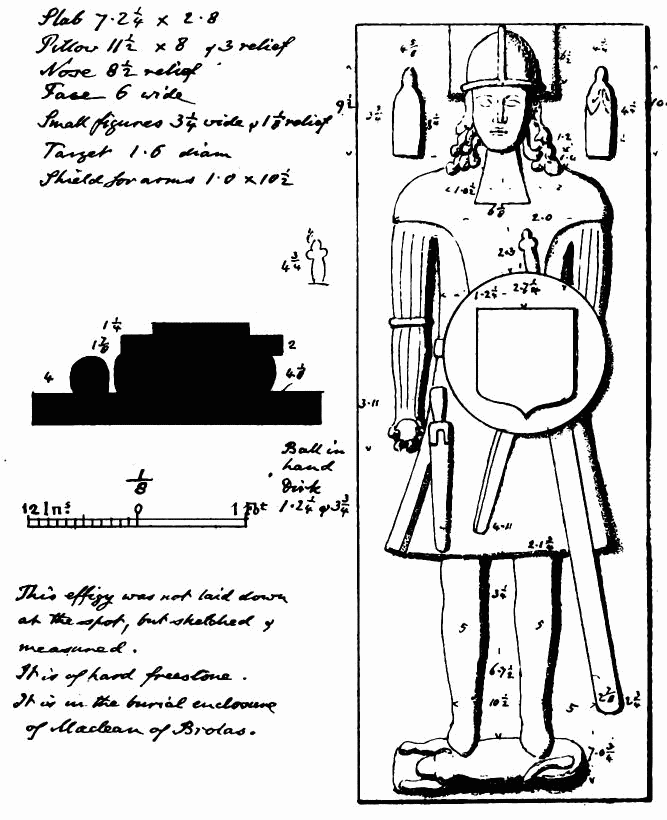 Slab 7·2¼ × 2·8
Pillow 11½ × 8 & 3 relief
Nose 8½ relief
Face 6 wide
Small figures 3¼ wide & 1⅛ relief
Target 1·6 diam
Shield for arms 1·0 × 10½
4¾
1¼
1⅞
2
4
4⅛
Ball in
hand
Dirk
1·2¼ & 3¾
1/8
12 Ins 0 1 Foot
This effigy was not laid down
at the spot, but sketched &
measured.
It is of hard freestone.
It is in the burial enclosure
of Maclean of Brolas.
9½
3¾
4¼
6⅛
2·0
2·3
1·2¼
3·11
4·11
3¼
5
5
6·7½
10½
5
2¾
7·0¾